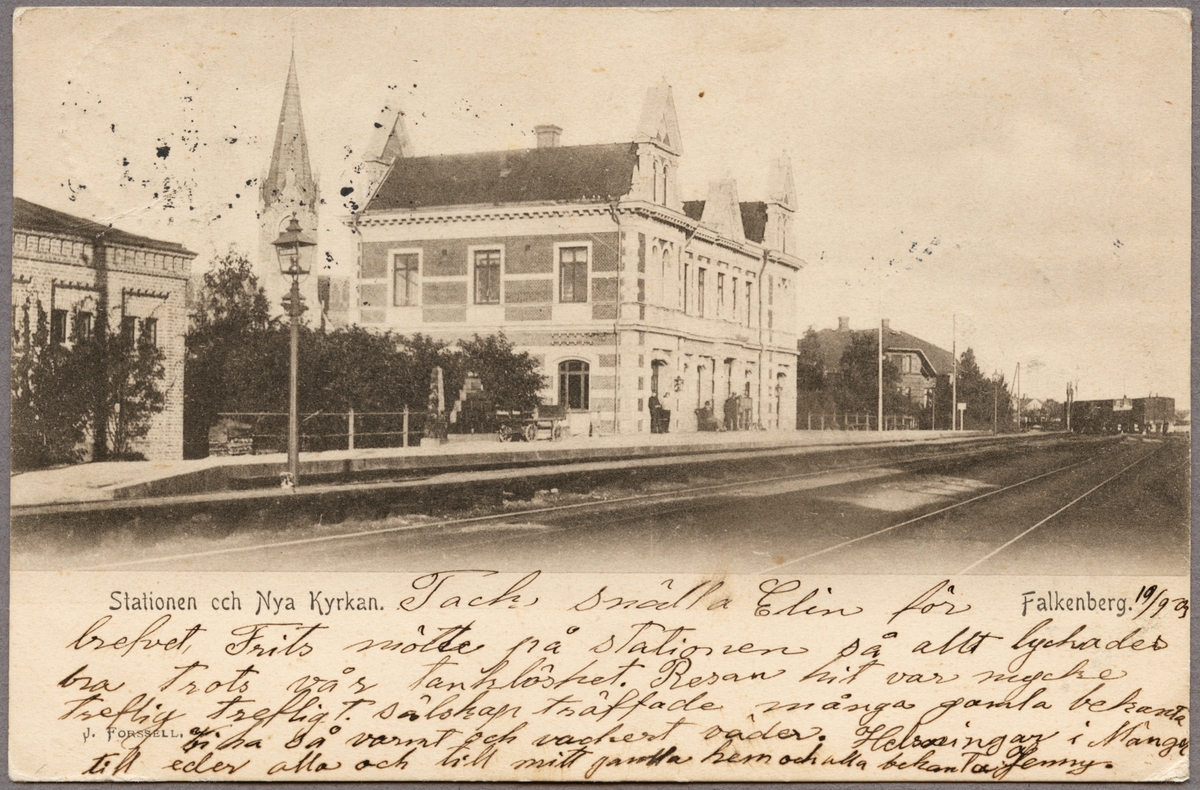 Stationen cch Nya Kyrkan. Tack snälla Elin för Falkenberg. 19/9 03
brefvet, Frits mötte på stationen så allt lyckades
bra trots vår tanklöshet. Resan hit var mycke
treflig trefligt. sälskap träffade många gamla bekanta
J. Forssell. Vi ha så varmt och vackert väder. Helsningar i Mängd
till eder alla och till mitt gamla hem och alla bekanta Jenny.